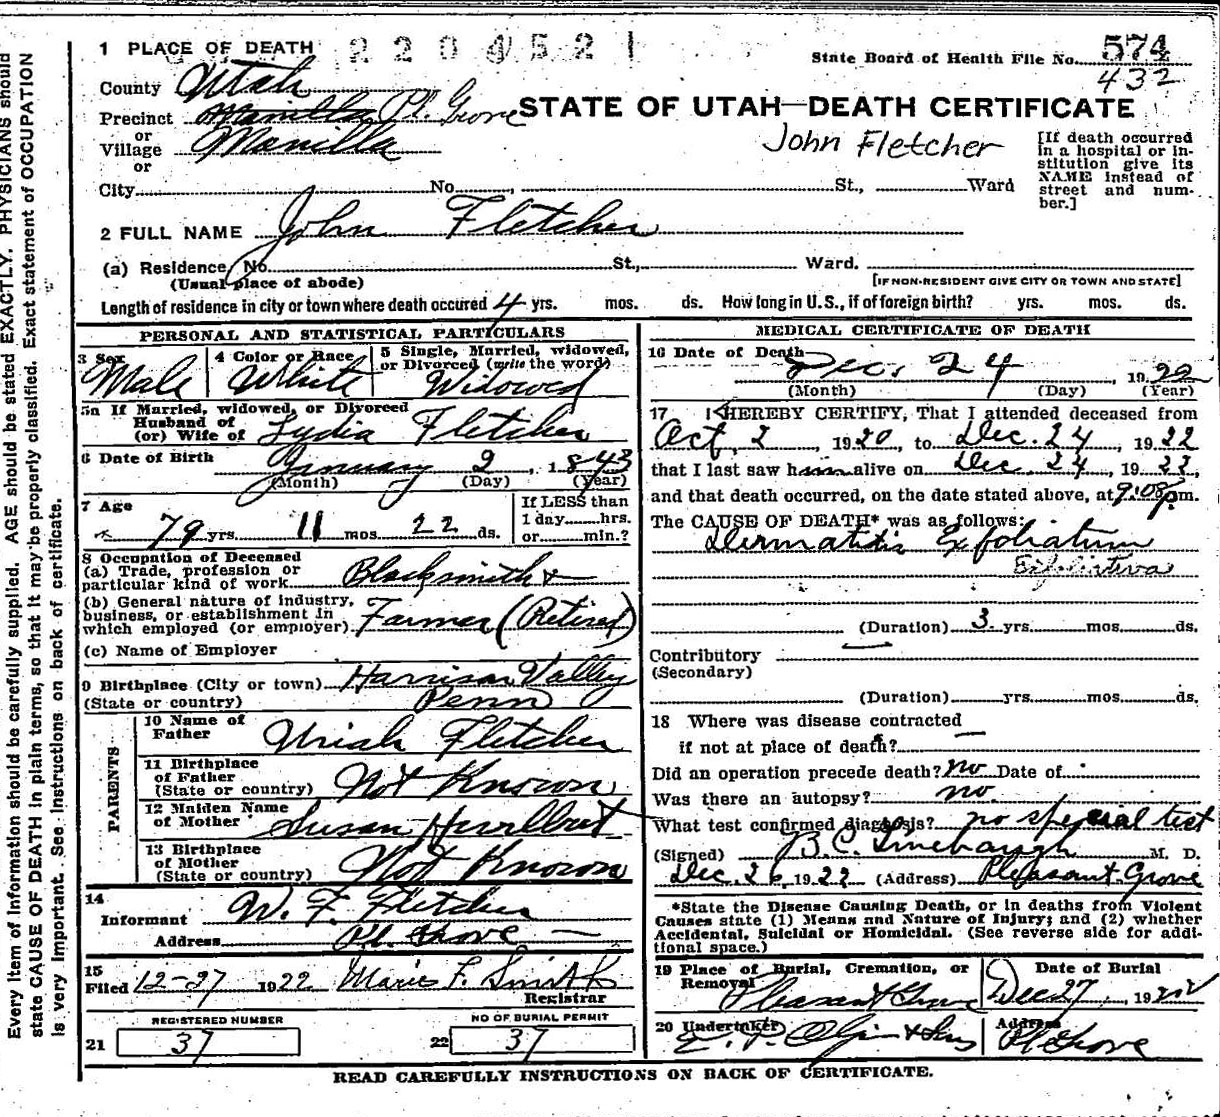 1 PLACE OF DEATH 2204521
State Board of Health File No. 574
432
County Utah
Precinct Manilla Pl. Grove
STATE OF UTAH—DEATH CERTIFICATE
or
Village Manilla
or
John Fletcher
[If death occurred
in a hospital or in-
stitution give its
NAME instead of
street and num-
ber.]
City No. St., Ward
2 FULL NAME John Fletcher
(a) Residence, No. St., Ward.
(Usual place of abode) [IF NON-RESIDENT GIVE CITY OR TOWN AND STATE]
Length of residence in city or town where death occured 4 yrs. mos. ds. How long in U.S., if of foreign birth? yrs. mos. ds.
PERSONAL AND STATISTICAL PARTICULARS
3 Sex 4 Color or Race 5 Single, Married, widowed,
or Divorced (write the word)
Male White Widowed
5a If Married, widowed, or Divorced
Husband of
(or) Wife of Lydia Fletcher
6 Date of Birth January 2, 1843
(Month) (Day) (Year)
7 Age If LESS than
1 day hrs.
79 yrs 11 mos 22 ds. or min.?
8 Occupation of Deceased
(a) Trade, profession or
particular kind of work Blacksmith &
(b) General nature of industry,
business, or establishment in
which employed (or employer) Farmer (Retired)
(c) Name of Employer
9 Birthplace (City or town) Harrison Valley
(State or country) Penn
PARENTS
10 Name of
Father Uriah Fletcher
11 Birthplace
of Father
(State or country) Not Known
12 Maiden Name
of Mother Susan Hurlbut
13 Birthplace
of Mother
(State or country) Not Known
14
Informant W. F. Fletcher
Address Pl. Grove
15
Filed 12-27 1922 F. Smith
Registrar
REGISTERED NUMBER NO OF BURIAL PERMIT
21 37 22 37
MEDICAL CERTIFICATE OF DEATH
16 Date of Death Dec. 24, 1922
(Month) (Day) (Year)
17 I HEREBY CERTIFY, That I attended deceased from
Oct 2, 1920, to Dec. 24, 1922
that I last saw him alive on Dec. 24, 1922,
and that death occurred, on the date stated above, at 9:08 pm.
The CAUSE OF DEATH* was as follows:
Dermatitis Exfoliatum
(Duration) 3 yrs. mos. ds.
Contributory
(Secondary)
(Duration) yrs. mos. ds.
18 Where was disease contracted
if not at place of death?
Did an operation precede death? no Date of
Was there an autopsy? no.
What test confirmed diagnosis? no special test
(Signed) B. C. Linebaugh M. D.
Dec. 26, 1922 (Address) Pleasant Grove
*State the Disease Causing Death, or in deaths from Violent
Causes state (1) Means and Nature of Injury; and (2) whether
Accidental, Suicidal or Homicidal. (See reverse side for addi-
tional space.)
19 Place of Burial, Cremation, or
Removal Date of Burial
Pleasant Grove Dec 27, 1922
20 Undertaker Address
Pl Grove
READ CAREFULLY INSTRUCTIONS ON BACK OF CERTIFICATE.
Every item of information should be carefully supplied. AGE should be stated EXACTLY. PHYSICIANS should
state CAUSE OF DEATH in plain terms, so that it may be properly classified. Exact statement of OCCUPATION
is very important. See instructions on back of certificate.